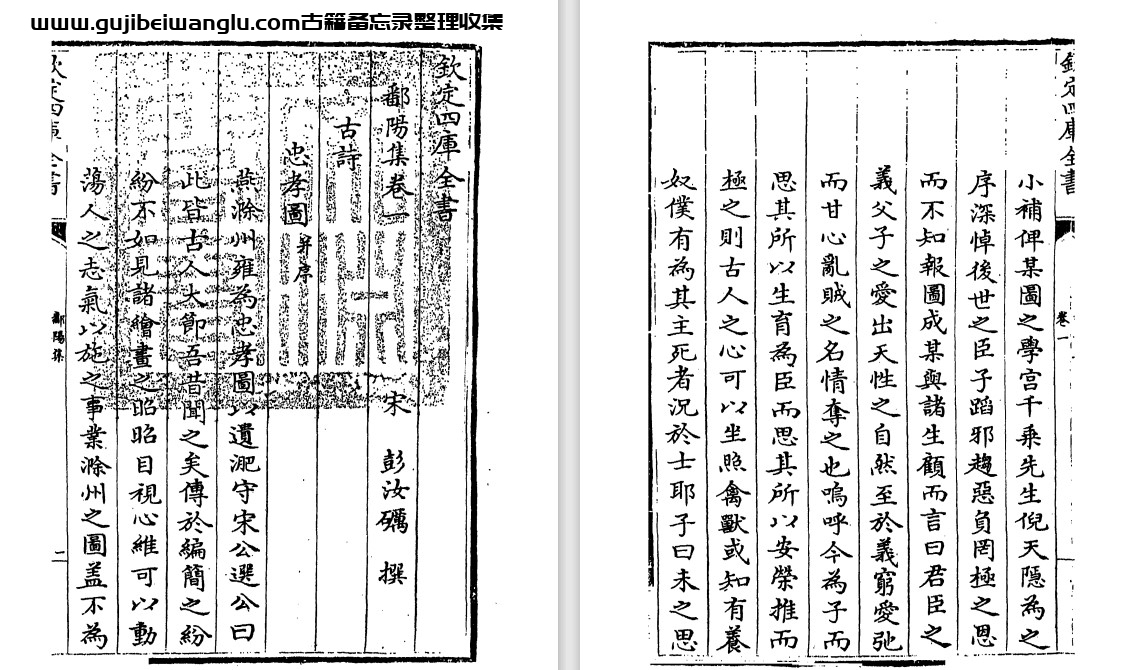 www.gujibeiwanglu.com古籍备忘录整理收集
欽定四庫全書
鄱陽集卷一
宋 彭汝礪 撰
古詩
忠孝圖并序
燕滁州雍為忠孝圖以遺淝守宋公選公曰
此皆古人大節吾昔聞之矣傳於編簡之紛
紛不如見諸繪畫之昭昭目視心維可以動
蕩人之志氣以施之事業滁州之圖盖不為
欽定四庫全書
鄱陽集
二
欽定四庫全書
卷一
小補俾某圖之學宫千乘先生倪天隱為之
序深悼後世之臣子蹈邪趨惡負罔極之恩
而不知報圖成某與諸生顧而言曰君臣之
義父子之愛出天性之自然至於義窮愛弛
而甘心亂賊之名情奪之也嗚呼今為子而
思其所以生育為臣而思其所以安榮推而
極之則古人之心可以坐照禽獸或知有養
奴僕有為其主死者況於士耶子曰未之思